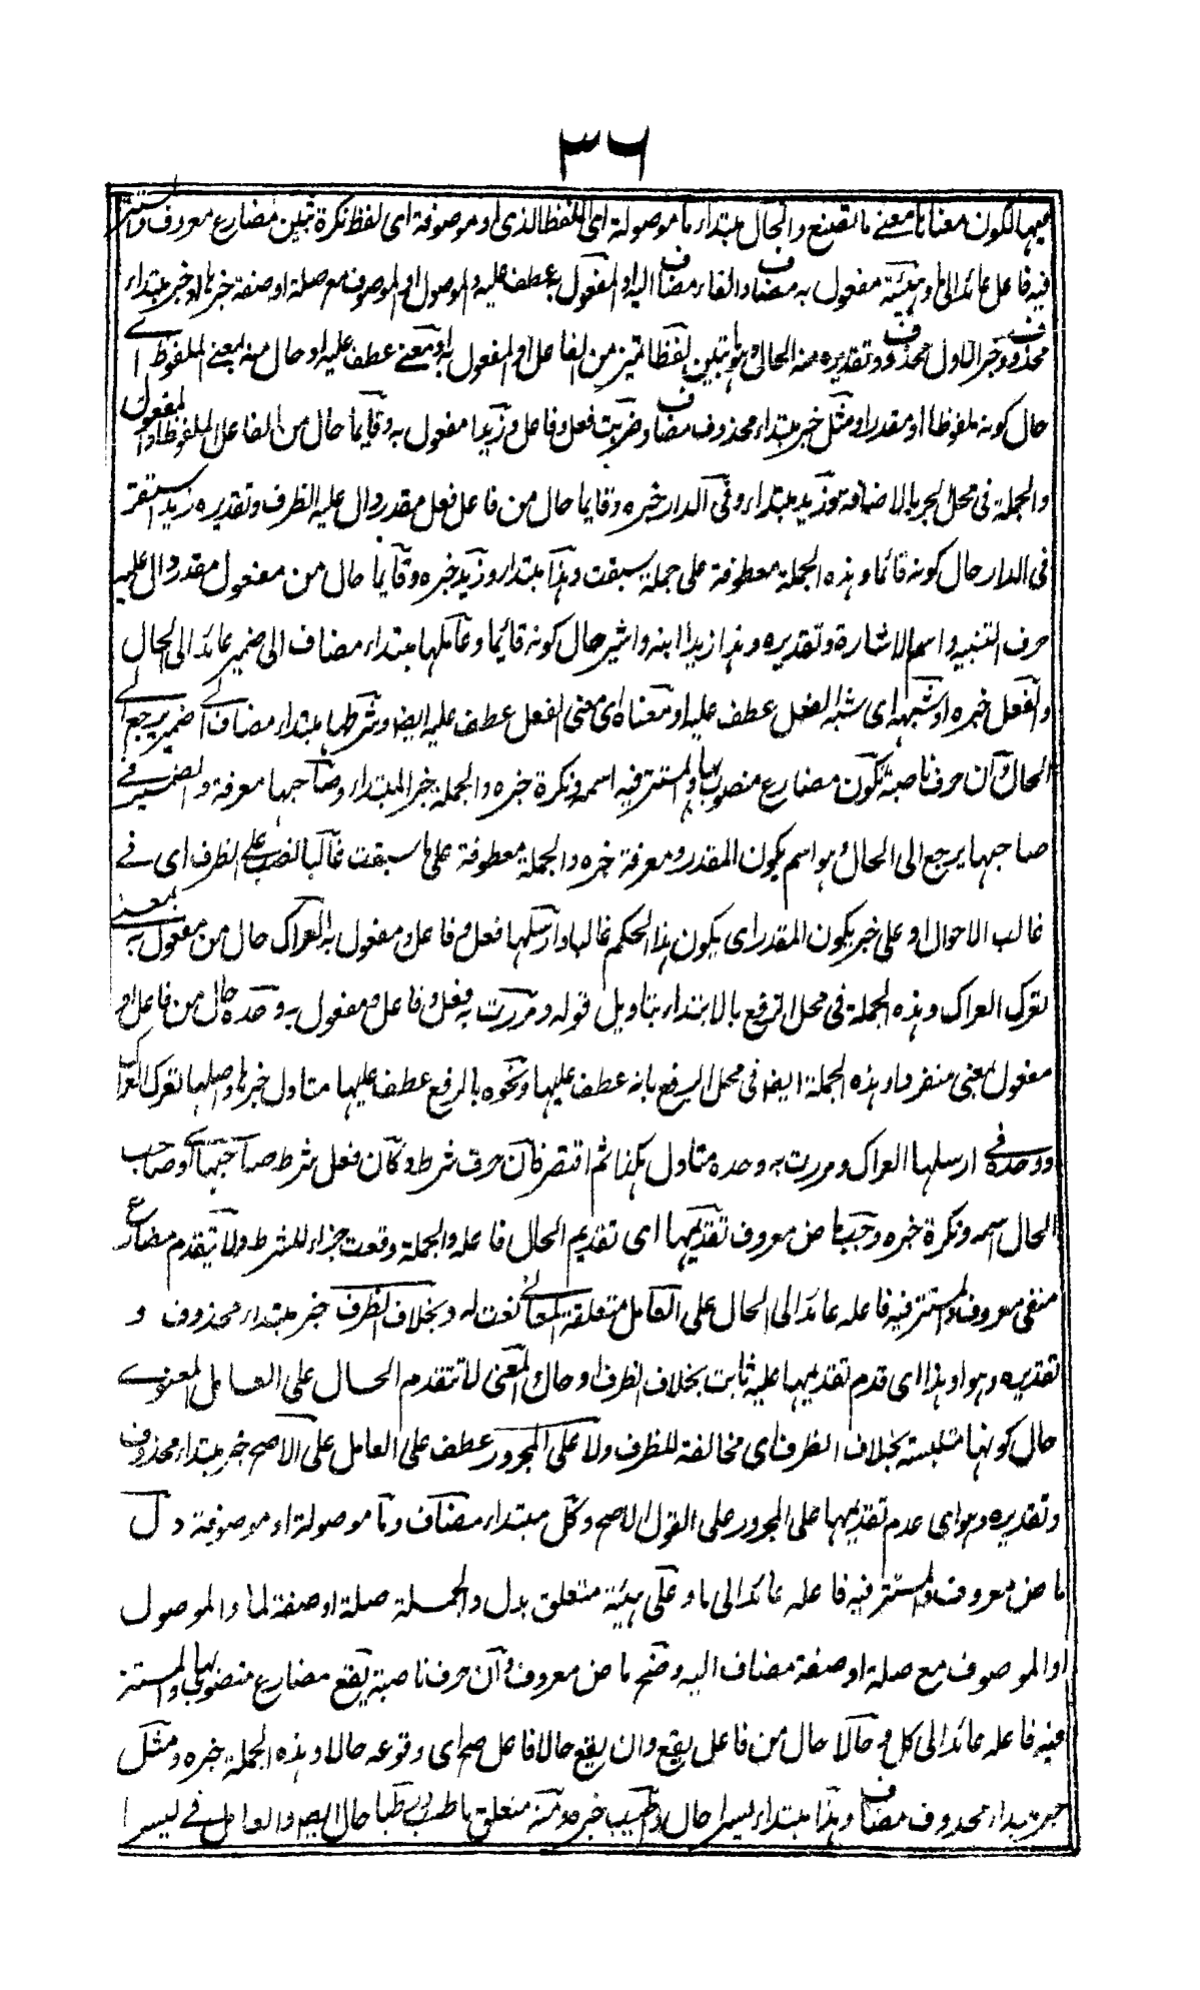 ٣٦
فيها لكون معناها معنى ما تصنع والحال مبتداء ما موصولة اى اللفظ الذى او موصوفة اى لفظ نكرة تبين مضارع معروف والمستتر
فيه فاعل عائد الى ما وهيئة مفعول به مضاف والفاعل مضاف اليه او المفعول به عطف عليه والموصول او الموصوف مع صلة او صفة خبرها او خبر مبتداء
محذوف وخبر الاول محذوف وتقديره منه الحال وهو ما تبين لفظا تميز من الفاعل او المفعول به او معنى عطف عليه او حال منه بمعنى الملفوظ اى
حال كونه ملفوظا او مقدرا ومثل خبر مبتداء محذوف مضاف وضربت فعل وفاعل وزيدا مفعول به وقايما حال من الفاعل الملفوظ او المفعول
والجملة فى محل الجر بالاضافة ونحو زيد مبتداء وفى الدار خبره وقايما حال من فاعل فعل مقدر دال عليه الظرف وتقديره زيد استقر
فى الدار حال كونه قائما وهذه الجملة معطوفة على جملة سبقت وهذا مبتداء وزيد خبره وقايما حال من مفعول مقدر دال عليه
حرف التنبيه واسم الاشارة وتقديره وهذا زيد انبه واشير حال كونه قائما وعاملها مبتداء مضاف الى ضمير عائد الى الحال
والفعل خبره او شبهه اى شبه الفعل عطف عليه او معناه اى معنى الفعل عطف عليه ايضا وشرطها مبتداء مضاف الى ضمير يرجع الى
الحال وان حرف ناصبة تكون مضارع منصوب بها والمستتر فيه اسمه ونكرة خبره والجملة خبر المبتداء وصاحبها معرفة والضمير فى
صاحبها يرجع الى الحال وهو اسم يكون المقدر ومعرفة خبره والجملة معطوفة على ما سبقت غالبا نصب على الظرف اى فى
غالب الاحوال او على خبر يكون المقدر اى يكون هذا الحكم غالبا وارسلها فعل وفاعل ومفعول به العراك حال من مفعول به بمعنى
تعرك العراك وهذه الجملة فى محل الرفع بالابتداء بتاويل قوله ومررت به فعل وفاعل ومفعول به وحده حال من فاعل او
مفعول بمعنى منفردا وهذه الجملة ايضا فى محل الرفع بانه عطف عليها ونحوه بالرفع عطف عليها متاول خبرها واصلها تعرك العراك
ووحده فى ارسلها العراك ومررت به وحده متاول هكذا ثم اقتصر فان حرف شرط وكان فعل شرط صاحبها اى صاحب
الحال اسمه ونكرة خبره وجب ماض معروف تقديمها اى تقديم الحال فاعله والجملة وقعت جزاء للشرط ولا يتقدم مضارع
منفى معروف والمستتر فيه فاعله عائد الى الحال على العامل متعلقة المعنوى نعت له وبخلاف الظرف خبر مبتداء محذوف و
تقديره وهو او هذا اى قدم تقديمها عليه ثابت بخلاف الظرف او حال والمعنى لا تتقدم الحال على العامل المعنوى
حال كونها متلبسة بخلاف الظرف اى مخالفة للظرف ولا على المجرور عطف على العامل على الاصح خبر مبتداء محذوف
وتقديره وهو اى عدم تقديمها على المجرور على القول الاصح وكل مبتداء مضاف وما موصولة او موصوفة دل
ماض معروف والمستتر فيه فاعله عائد الى ما وعلى هيئة متعلق بدل والجملة صلة او صفة لما والموصول
او الموصوف مع صلة او صفة مضاف اليه وصح ماض معروف وان حرف ناصبة يقع مضارع منصوب بها والمستتر
فيه فاعله عائد الى كل وحالا حال من فاعل يقع وان يقع حالا فاعل صح اى وقوعه حالا وهذه الجملة خبره ومثل
خبر مبتداء محذوف مضاف وهذا مبتداء بسرا حال واطيب خبره ومنه متعلق باطيب ورطبا حال ايضا والعامل فى بسرا